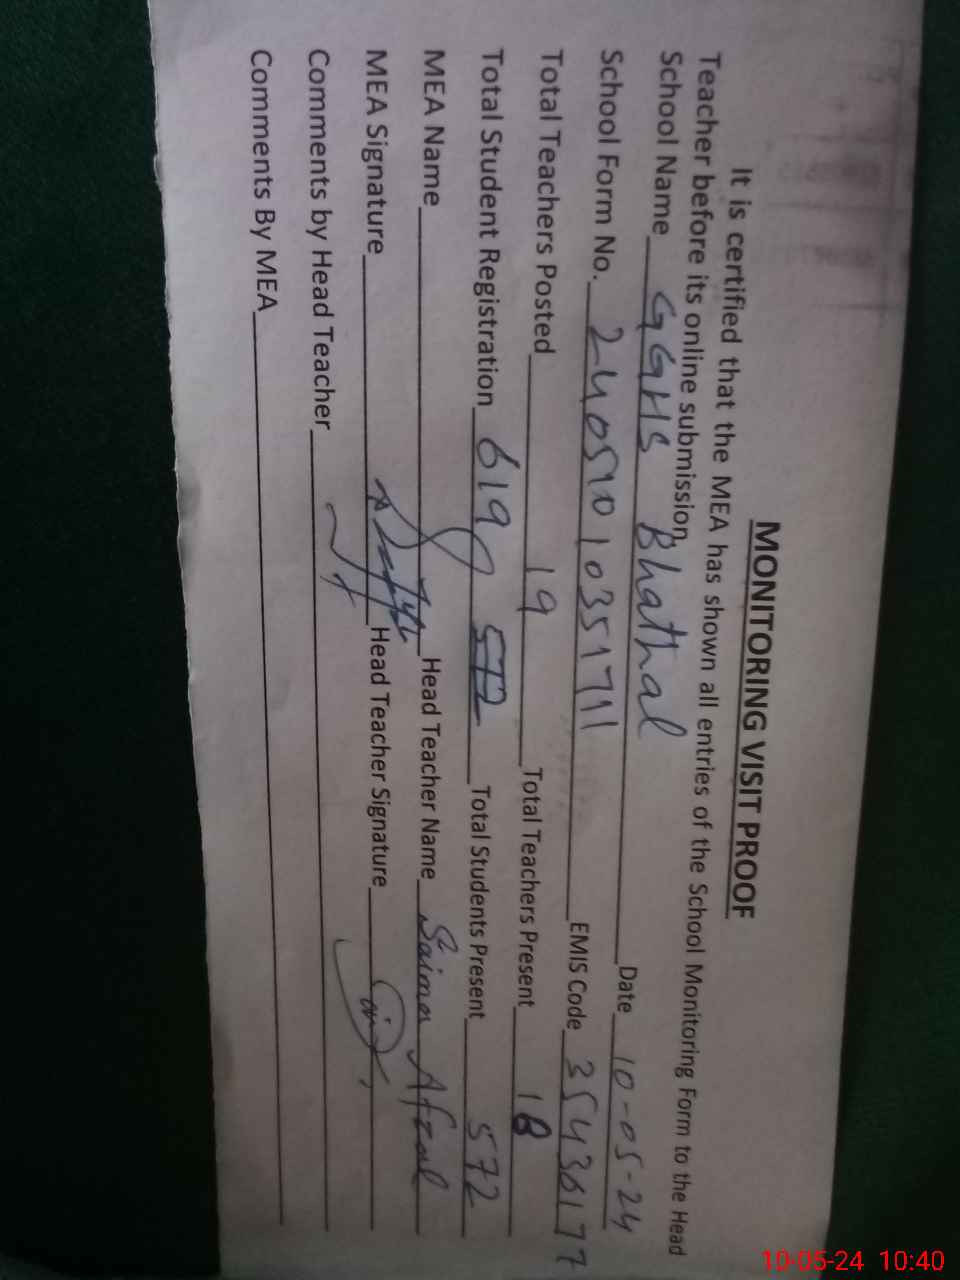 MONITORING VISIT PROOF
It is certified that the MEA has shown all entries of the School Monitoring Form to the Head
Teacher before its online submission.
School Name GGHS Bhathal Date 10-05-24
School Form No. 24051010351711 EMIS Code 35430177
Total Teachers Posted 19 Total Teachers Present 18
Total Student Registration 619 572 Total Students Present 572
MEA Name Head Teacher Name Saima Afzal
MEA Signature Head Teacher Signature
Comments by Head Teacher
Comments By MEA
10-05-24 10:40